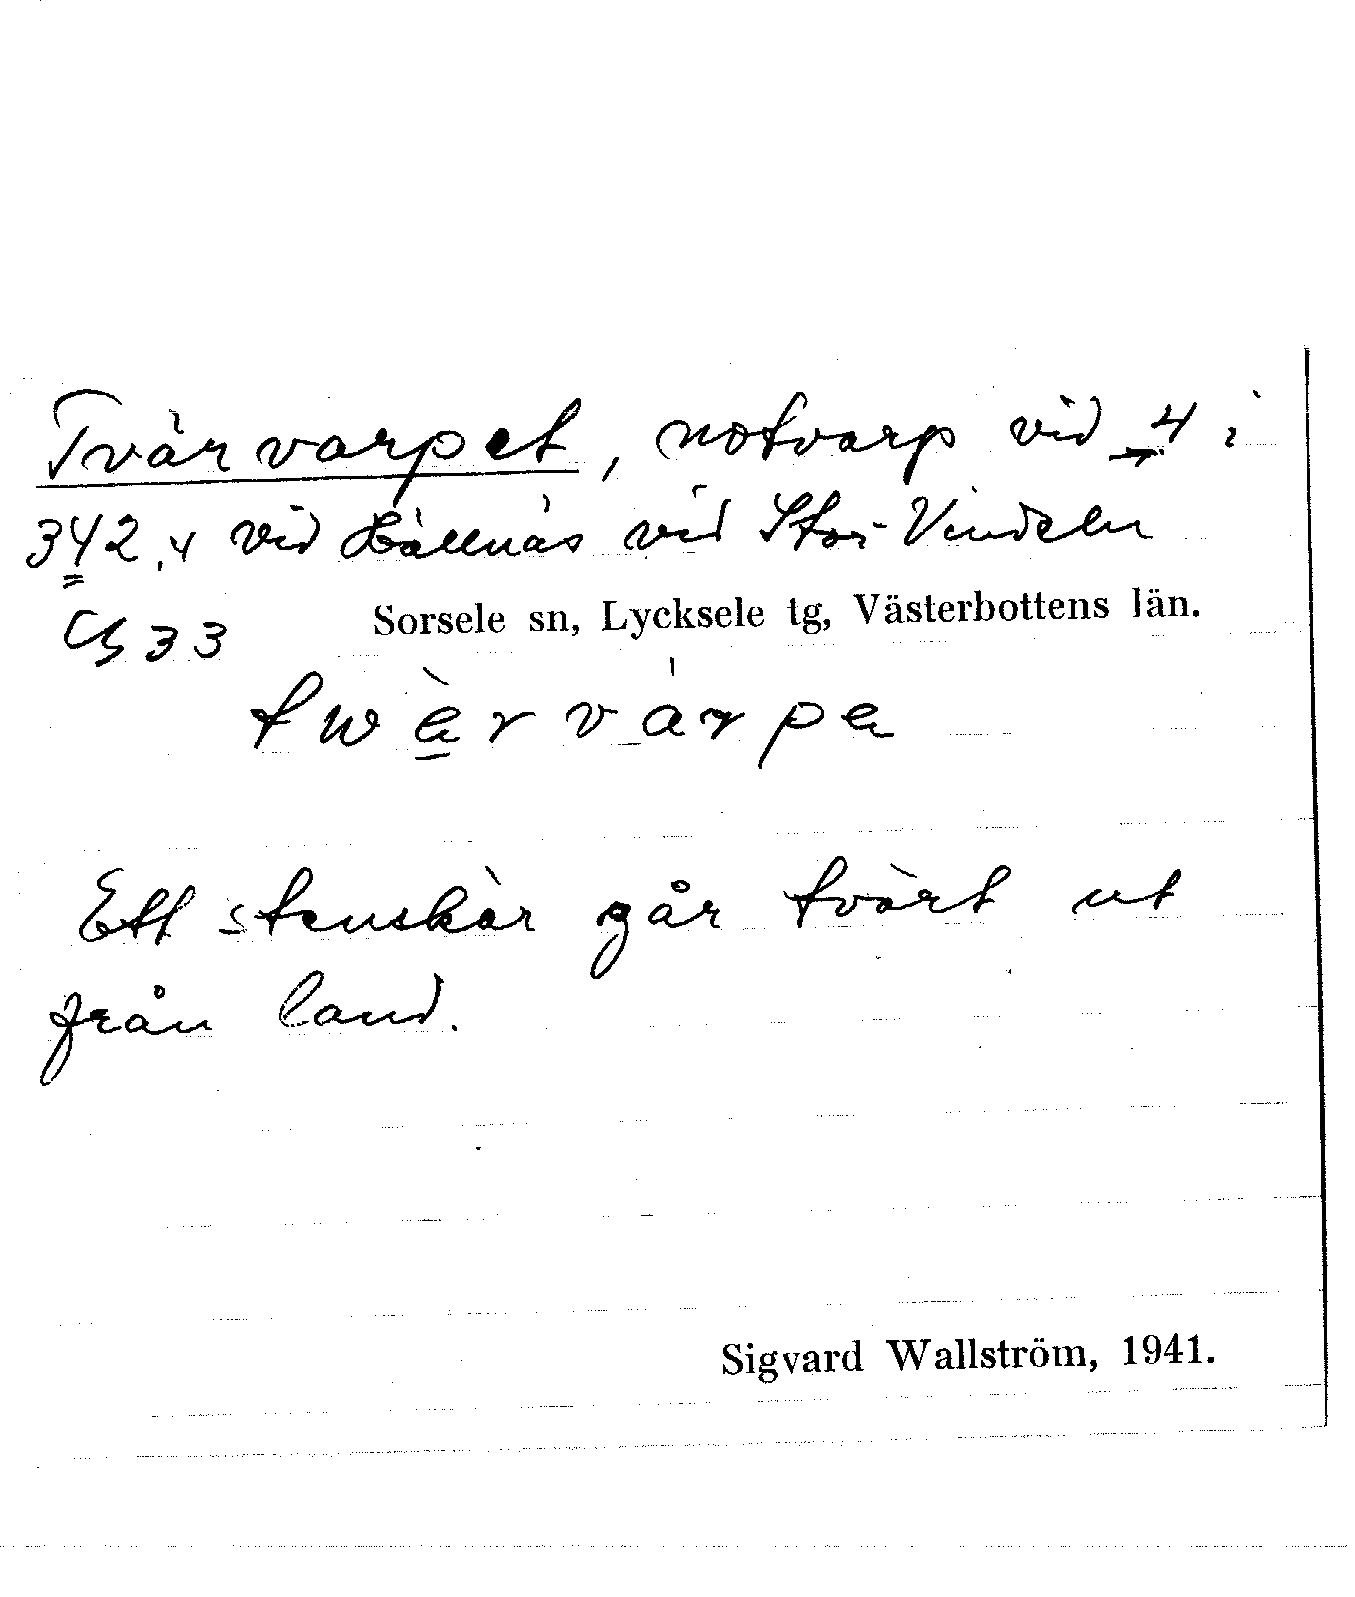 Tvärvarpet, notvarp vid 4 i
342,4 vid Hällnäs vid Stor-Vindeln
33 Sorsele sn, Lycksele tg, Västerbottens län.
twèrvárpa
Ett stenskär går tvärt ut
från land.
Sigvard Wallström, 1941.